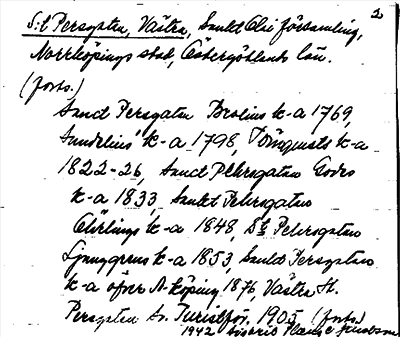 2
S:t Persgatan, Västra, Sankt Olai församling,
Norrköpings stad, Östergötlands län.
(forts.)
Sanct Persgatan Brolius' k-a 1769,
Sundelius' k-a 1798, Törnquists k-a
1822-26, Sanct Pehrsgatan Godes
k-a 1833, Sankt Pehrsgatan
k-a 1848, St Pehrsgatan
Ljunggrens k-a 1853, Sankt Persgatan
k-a öfver N-köping 1876, Västra St.
Persgatan Sv. Turistför. 1905 (forts.)
1942